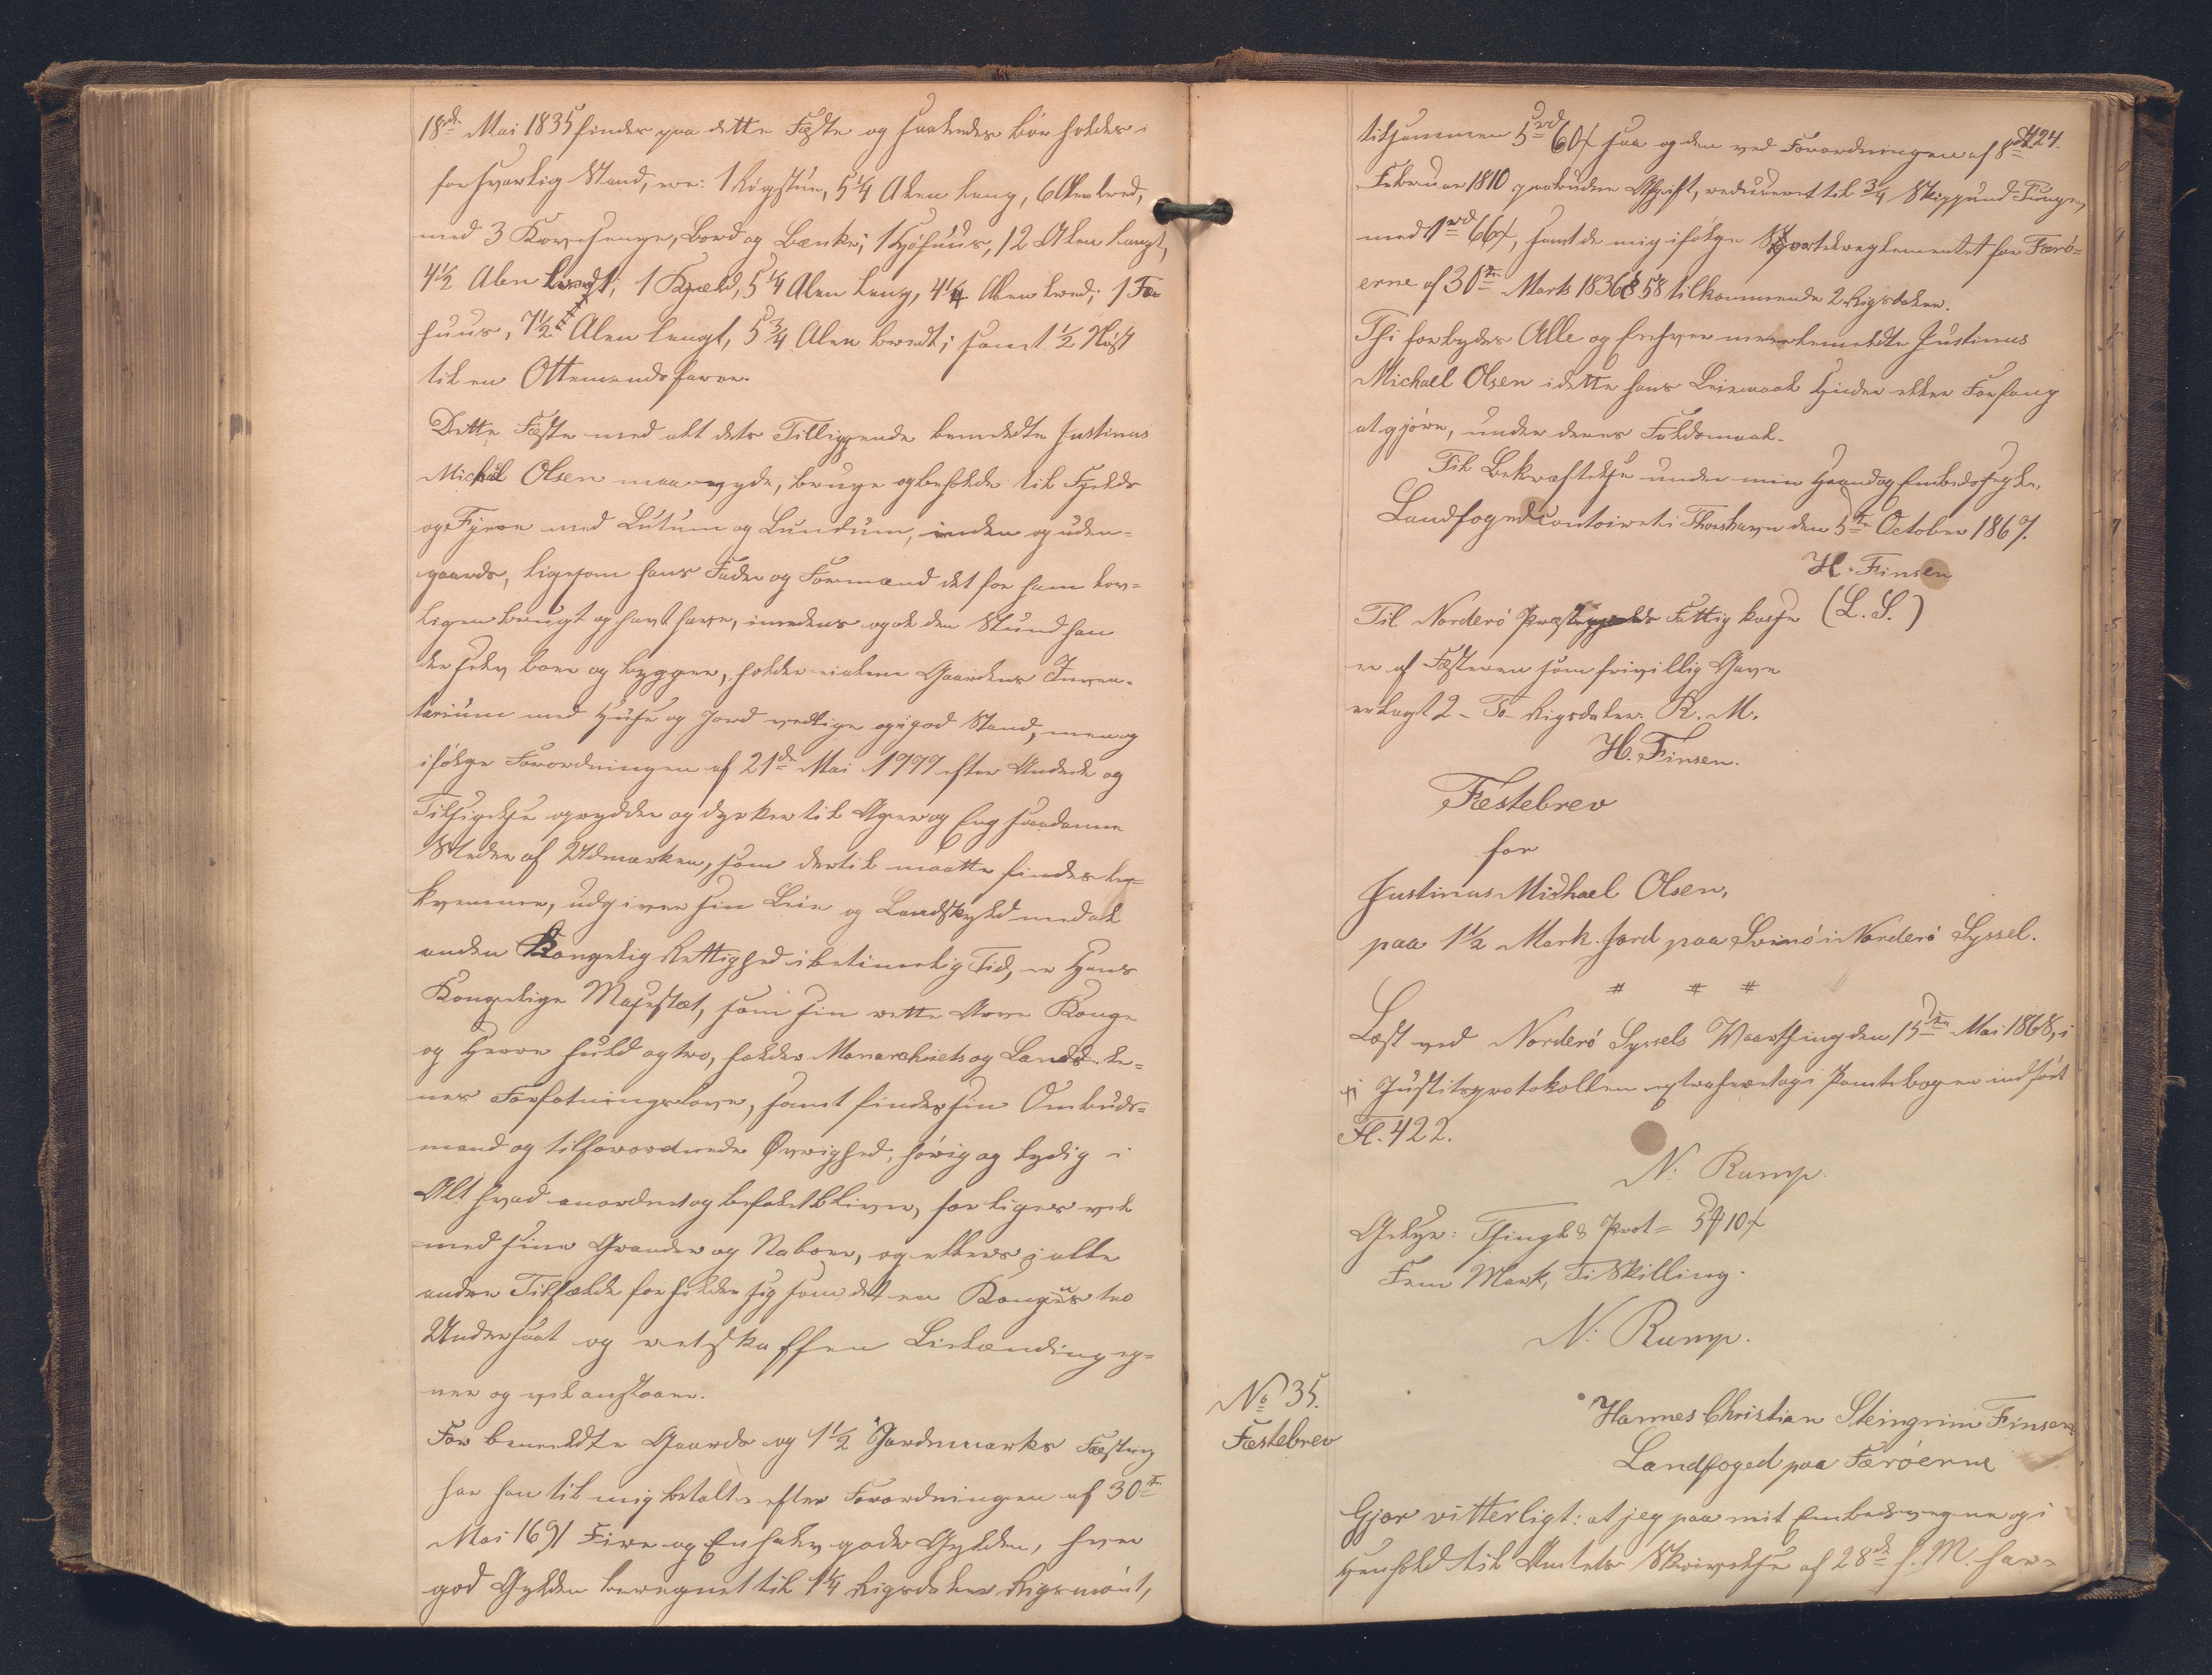 18de Mai 1835 findes paa dette Fæste og saaledes bør holdes i
forsvarlig Stand, ere: 1 Rögstue, 5 1/4 Alen lang, 6 Alen bred,
med 3 Kovesenge, Bord og Bænke; 1 Hjöhuus, 12 Alen langt,
4 1/2 Alen bredt; 1 Kjæld, 5 1/4 Alen lang, 4 1/4 Alen bred; 1 Fæ-
huus, 7 1/2 Alen langt, 5 3/4 Alen bredt; samt 1/2 Nöst
til en Ottemandsfarer.
Dette Fæste med alt dets Tilliggende bemeldte Justinus
Michael Olsen maa nyde, bruge og beholde til Fjelds
og Fjære med Lutum og Lundum, inden og uden-
gaards, ligesom hans Fader og Formænd det for ham lov-
ligen brugt og havt have, imedens og al den Stund han
der selv boer og bygger, holder eiden Gaardens Inven-
tarium med Huse og Jord vedlige og i god Stand, men og
ifölge Forordningen af 21de Mai 1777 efter Anden og
Tilsigelse oprydder og dyrker til Ager og Eng saadanne
Steder af Udmarken, som dertil maatte findes be-
kvemme, udgiver sin Leie og Landskyld med al
anden Kongelig Rettighed i betimelig Tid, er Hans
Kongelige Majestæt, som sin rette Arve Konge
og Herre huld og tro, holder Monarchiets og Landsde-
nes Forfatningslove, samt findes sin Ombuds-
mand og tilforordnede Øvrighed, hørig og lydig i
Alt hvad anordnet og befalet bliver, forliges vel
med sine Grander og Naboer, og ellers i alle
andre Tilfælde forholder sig som det en Kongens tro
Undersaat og retskaffen Leilænding eg-
ner og vel anstaaer.
For bemeldte Gaards og 1 1/2 Jordemarks Fæsting
har han til mig betalt efter Forordningen af 30te
Mai 1691 Fire og En halv gode Gylden, hver
god Gylden beregnet til 1 1/4 Rigsdaler Rigsmönt,
424.
tilsammen 5rd 60ß saa og den ved Forordningen af 8de
Februar 1810 paabudne Afgift, reduceret til 3/4 Skippund Tunge,
med 1rd 66ß, samt de mig ifölge Sportelreglementet for Færö-
erne af 30te Marts 1836 § 58 tilkommende 2 Rigsdaler.
Thi forbydes Alle og Enhver meerbemeldte Justinus
Michael Olsen i dette hans Leiemaal Hinder eller Forfang
at gjöre, under deres Faldsmaal.
Til Bekræftelse under min Haand og Embedssegl.
Landfogedcontoiret i Thorshavn den 5te October 1867.
H. Finsen
(L. S.)
Til Norderö Præstegjelds Fattigkasse
er af Fæsteren som frivillig Gave
erlagt 2 - To - Rigsdaler R. M.
H. Finsen.
Fæstebrev
for
Justinus Michael Olsen,
paa 1 1/2 Mark Jord paa Svinö i Norderö Syssel.
# # #
Læst ved Norderö Syssels Vaarthing den 15de Mai 1868, i
Justitsprotokollen extraheret og i Pantebogen indfört
Fl. 422.
N. Rump.
Gebyr: Thingl & Prot = 5 10ß
Fem Mark, Ti Skilling.
N. Rump.
No 35.
Fæstebrev
Hannes Christian Steingrim Finsen
Landfoged paa Færöerne
Gjør vitterligt: at jeg paa mit Embedsvegne og i
Henhold til Amtets Skrivelse af 28de f. M. har